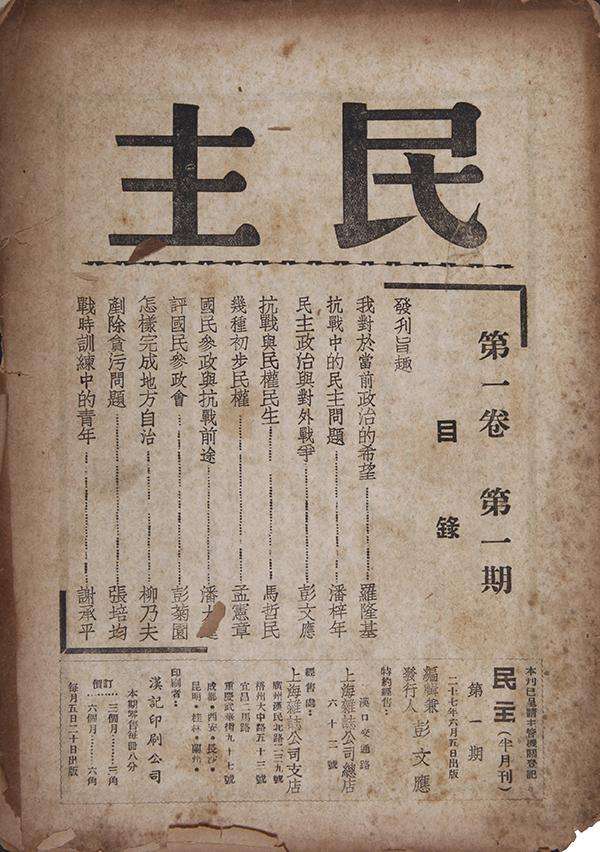 民主
第一卷 第一期
目錄
發刊旨趣
我對於當前政治的希望……羅隆基
抗戰中的民主問題……潘梓年
民主政治與對外戰爭……彭文應
抗戰與民權民生……馬哲民
幾種初步民權……孟憲章
國民參政與抗戰前途……潘大
評國民參政會……彭菊園
怎樣完成地方自治……柳乃夫
剷除貪污問題……張培均
戰時訓練中的青年……謝承平
本刊已呈請主管機關登記
民主(半月刊)
第一期
二十七年六月五日出版
編輯兼發行人 彭文應
特約經售:
漢口交通路
上海雜誌公司總店
六十二號
經售處:
上海雜誌公司支店
廣州漢民北路二三九號
梧州大中路五十三號
宜昌二馬路
重慶武庫街九十七號
成都•西安•長沙•
昆明•桂林•蘭州•
印刷者:
漢記印刷公司
本期零售每冊八分
訂價
三個月……三角
六個月……六角
每月五日二十日出版